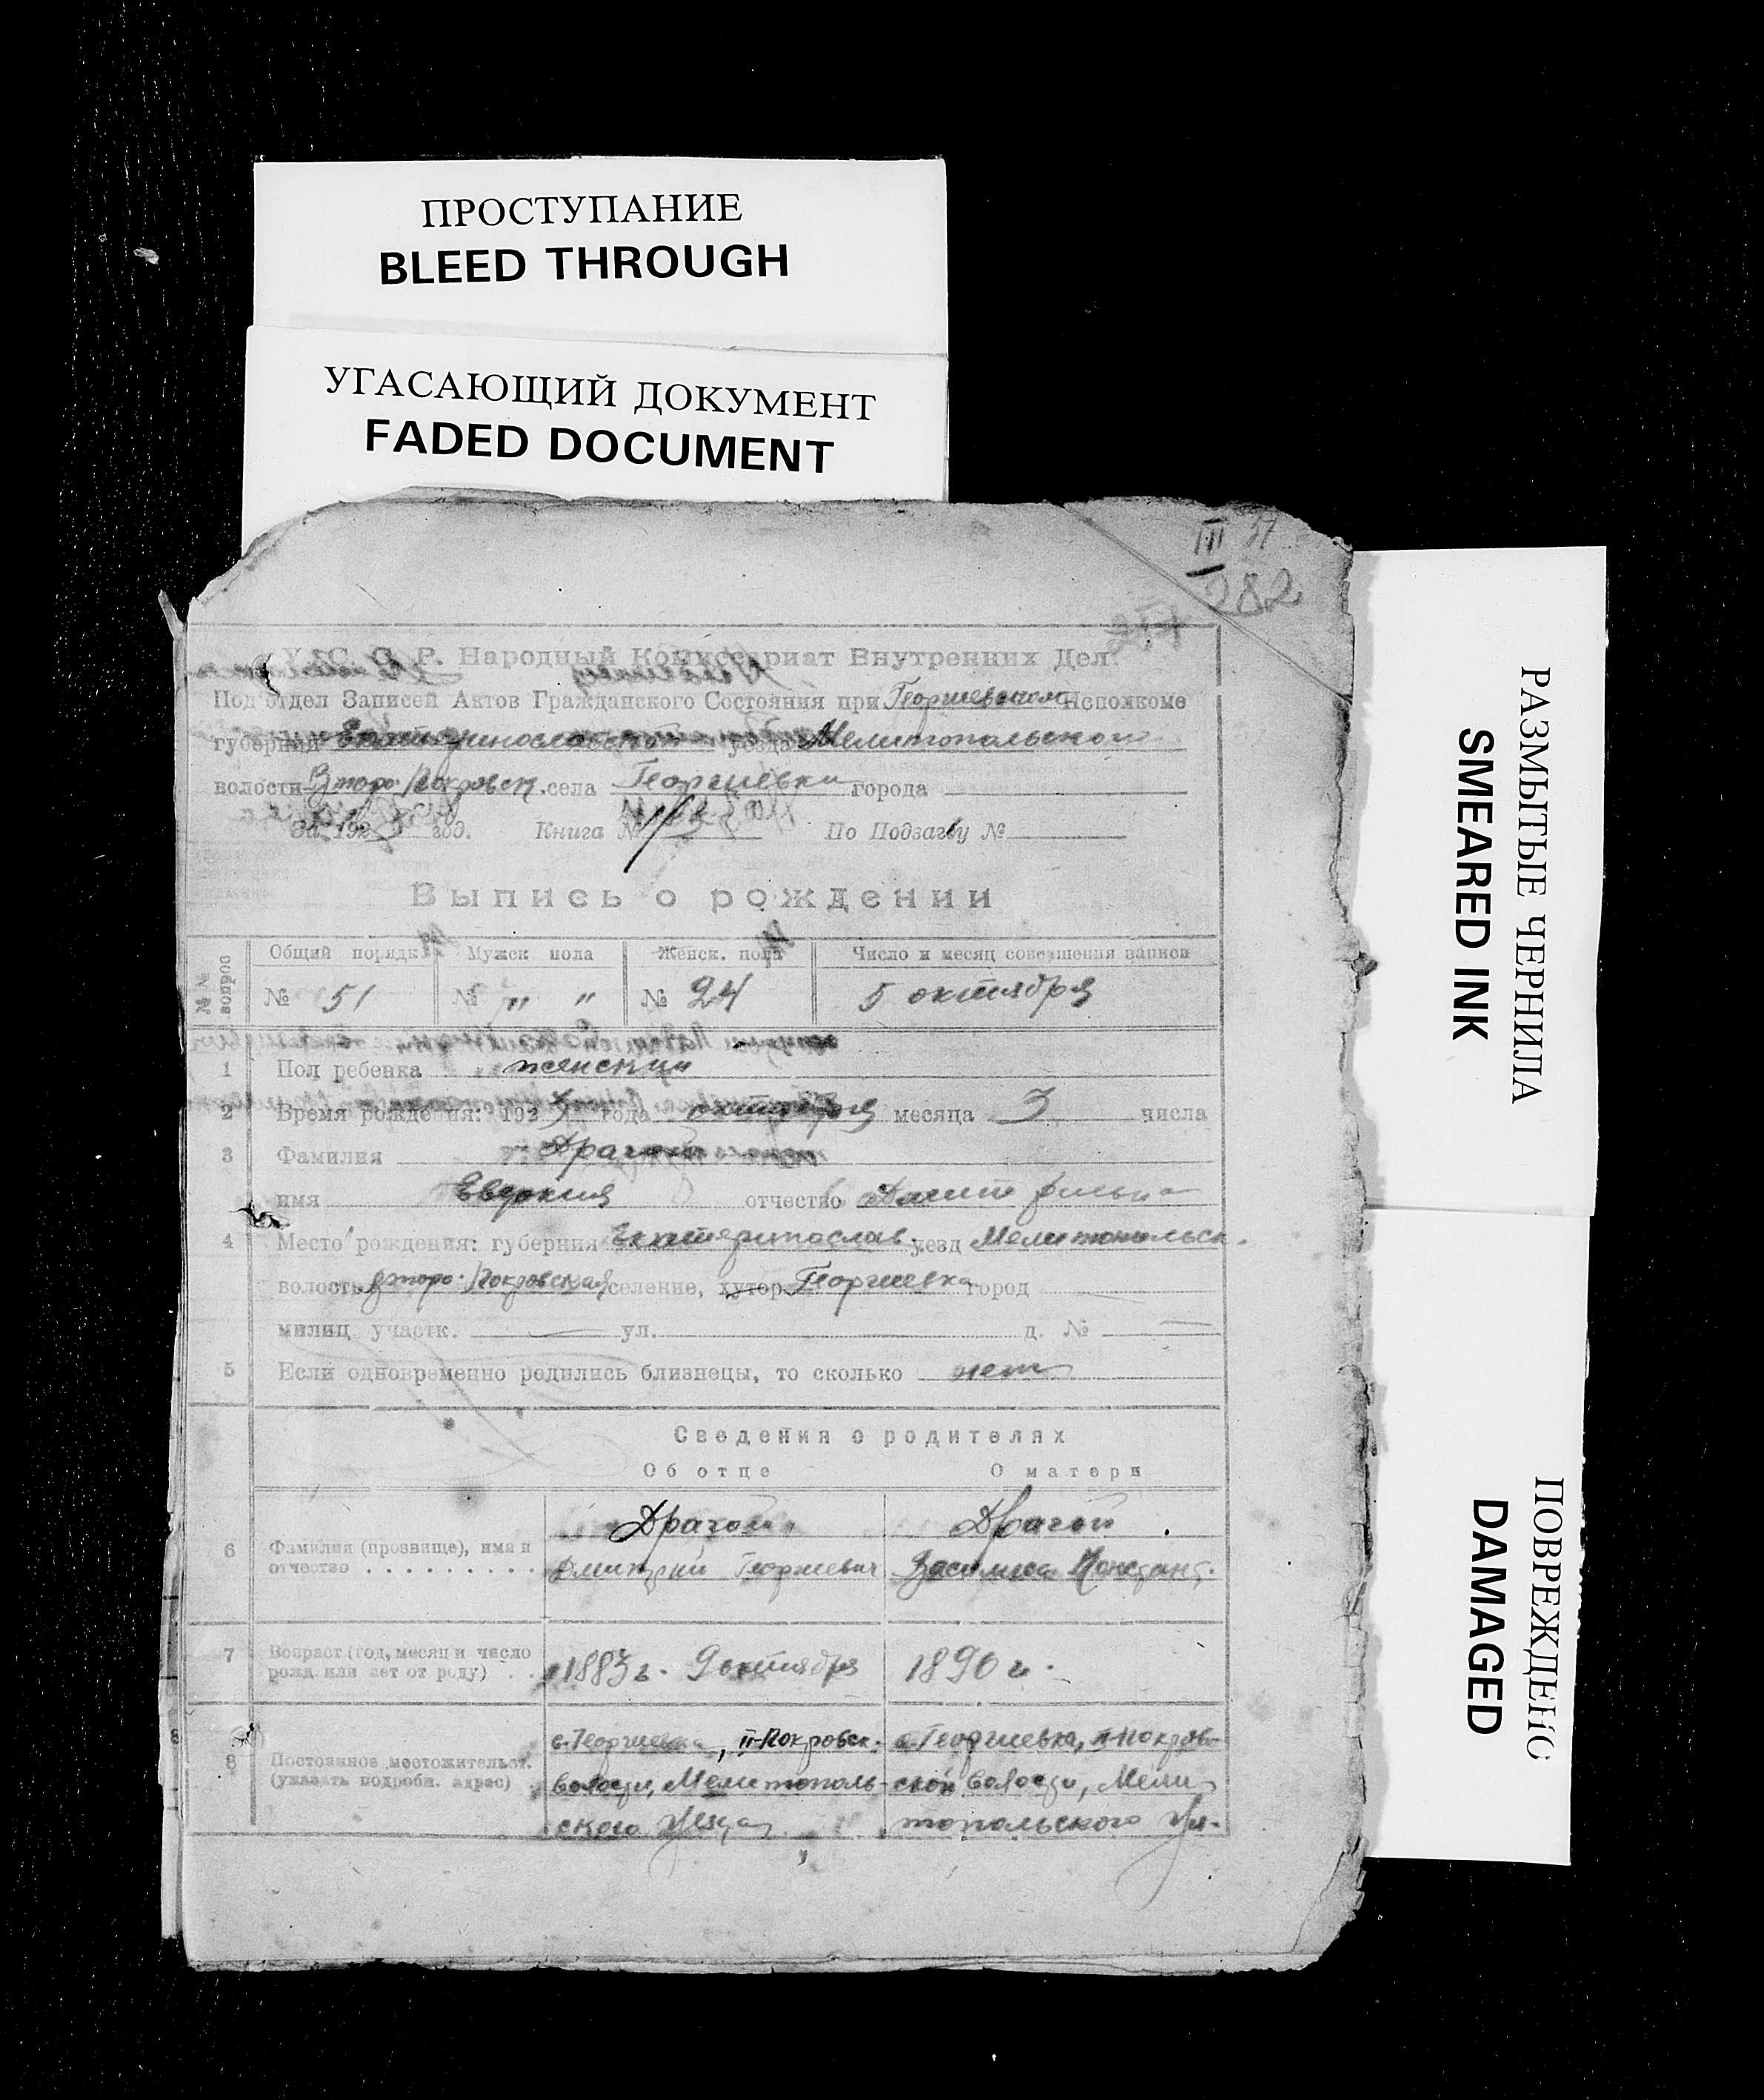 ПРОСТУПАНИЕ
BLEED THROUGH
УГАСАЮЩИЙ ДОКУМЕНТ
FADED DOCUMENT
III
282
У. С. С. Р. Народный Комиссариат Внутренних Дел.
Под'отдел Записей Актов Гражданского Состояния при Георгиевском Исполкоме
губернии Екатеринославской уезда Мелитопольского
волости Второ-Покровск. села Георгиевки города
За 192 год. Книга № По Подзагсу №
Выпись о рождении
№№ вопрос
Общий порядк Мужск пола Женск. пола Число и месяц совершения записи
№ 51 № " " № 24 5 октября
1 Пол ребенка женский
2 Время рождения: 192 года октября месяца 3 числа
3 Фамилия Драгой
имя Евдокия отчество Дмитриевна
4 Место рождения: губерния Екатеринослав. уезд Мелитопольск.
волость Второ-Покровская селение, хутор Георгиевка город
милиц участк. ул. д. №
5 Если одновременно родились близнецы, то сколько нет
Сведения о родителях
Об отце О матери
Драгой Драгой
6 Фамилия (прозвище), имя и отчество Дмитрий Георгиевич Констант.
7 Возраст (год, месяц и число рожд. или лет от роду) 1883 г. 9 октября 1890 г.
8 Постоянное местожительст. (указать подробн. адрес)
с. Георгиевка, II-Покровск. с. Георгиевка, II-Покров-
волости, Мелитополь- ской волости, Мели
ского уезда топольского
РАЗМЫТЫЕ ЧЕРНИЛА
SMEARED INK
ПОВРЕЖДЕНС
DAMAGED